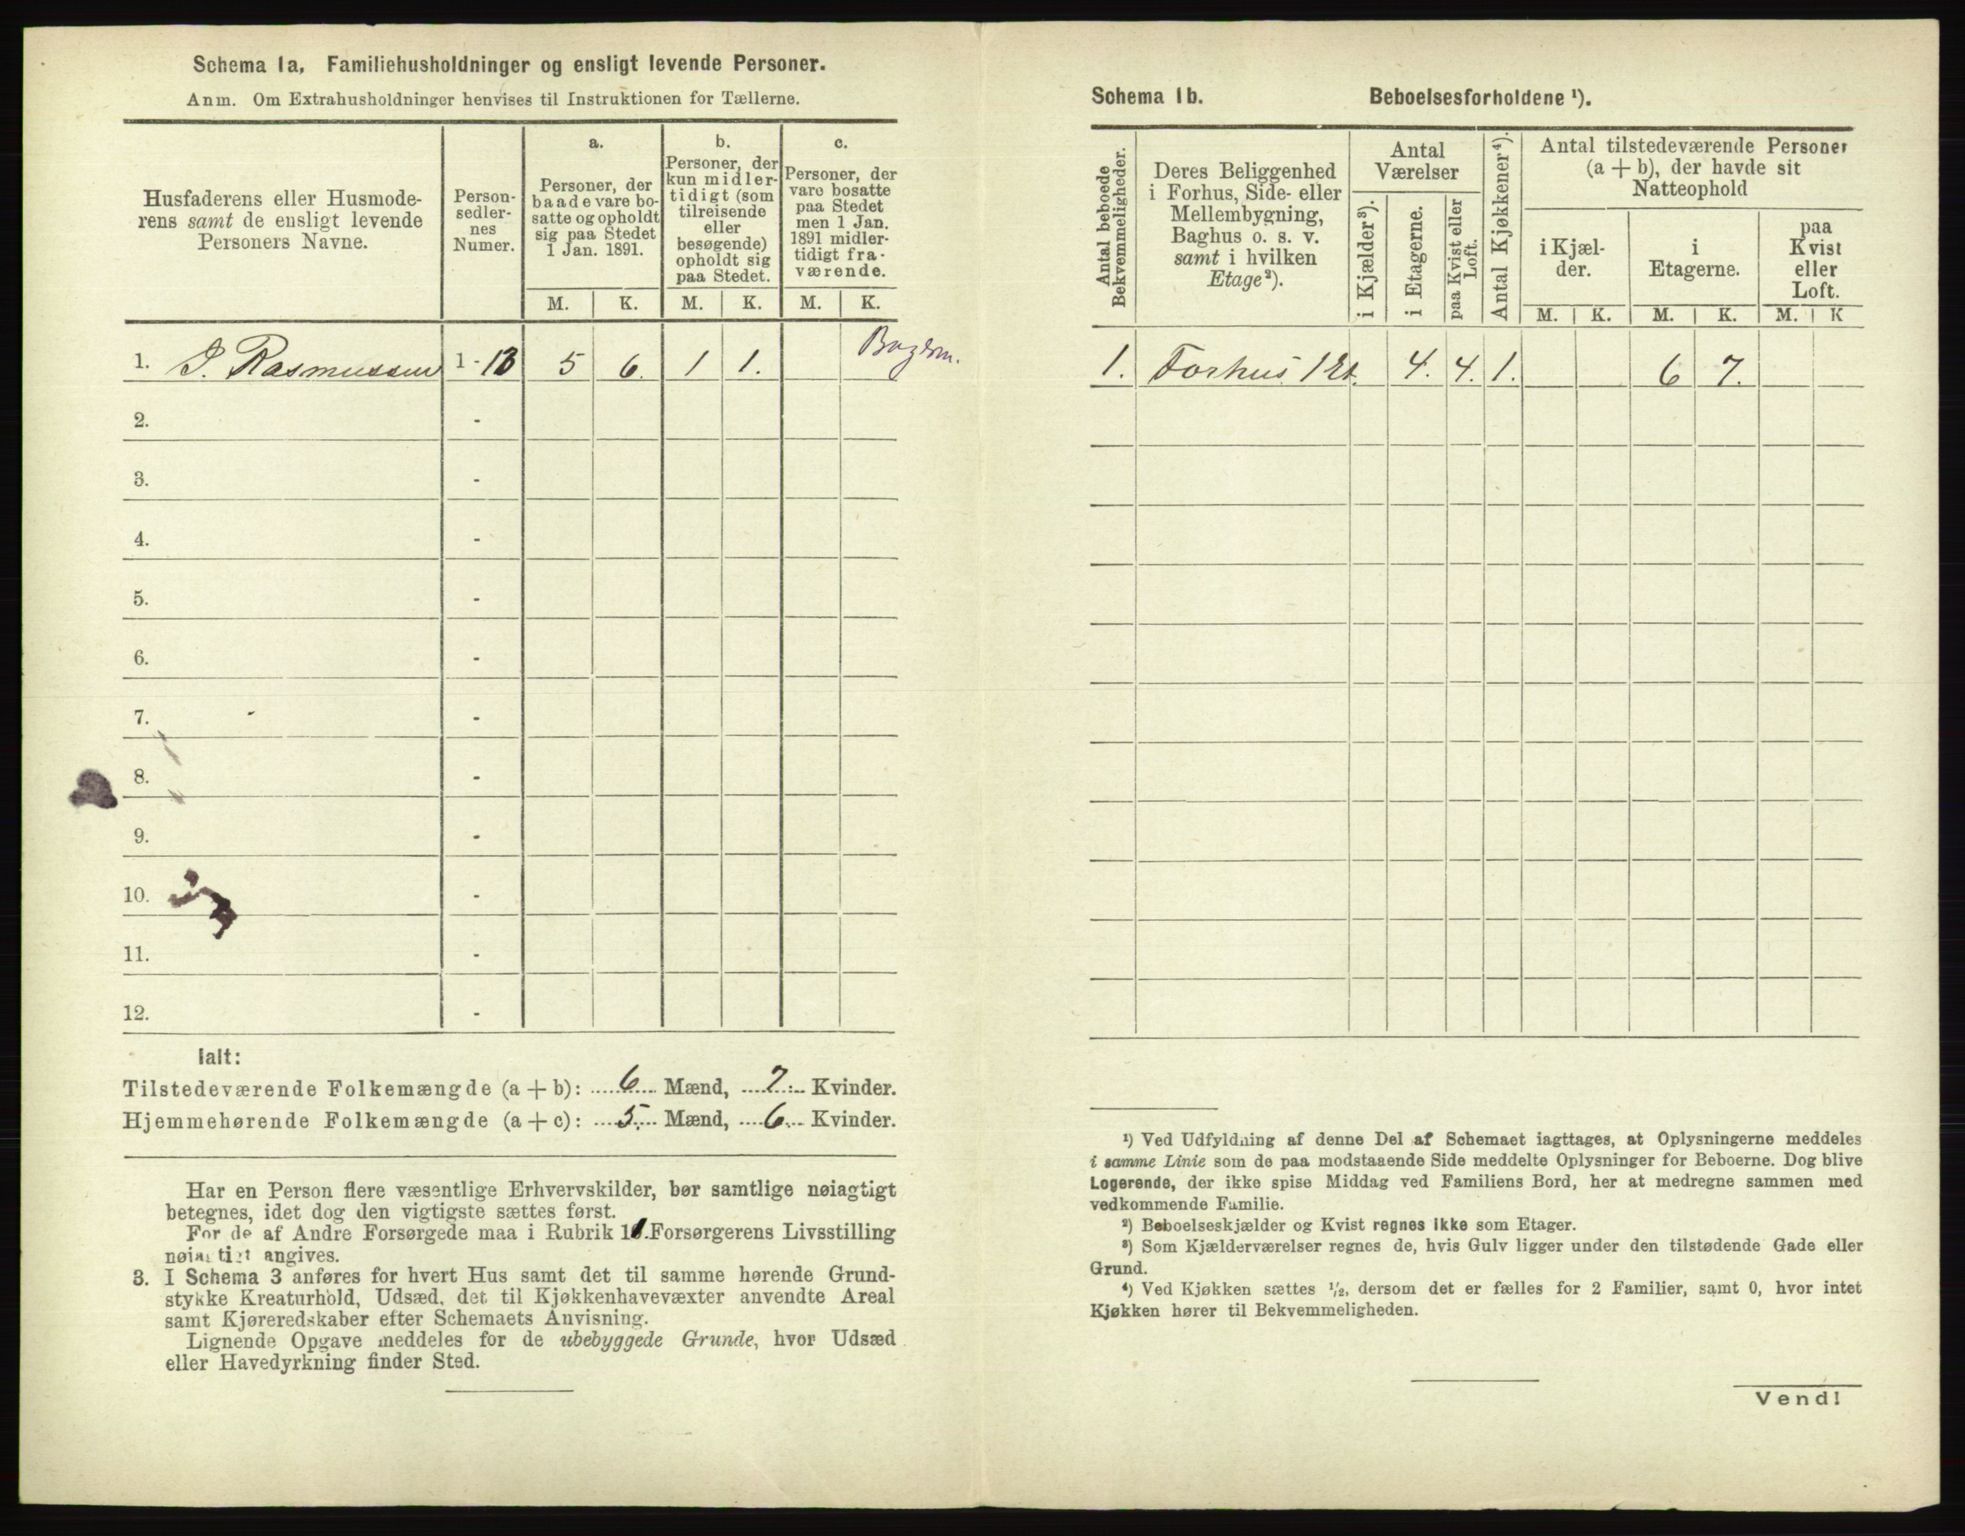 Schema 1a. Familiehusholdninger og ensligt levende Personer.
Anm. Om Extrahusholdninger henvises til Instruktionen for Tællerne.
Husfaderens eller Husmode-
rens samt de ensligt levende
Personers Navne.
Person-
sedler-
nes
Numer.
a.
Personer, der
baade vare bo-
satte og opholdt
sig paa Stedet
1 Jan. 1891.
b.
Personer, der
kun midler-
tidigt (som
tilreisende
eller
besøgende)
opholdt sig
paa Stedet.
c.
Personer, der
vare bosatte
paa Stedet
men 1 Jan.
1891 midler-
tidigt fra-
værende.
M. K. M. K. M. K.
1. J. Rasmussen 1 - 13 5 6. 1 1.
2. -
3. -
4. -
5. -
6. -
7. -
8. -
9. -
10. -
11. -
12. -
Ialt:
Tilstedeværende Folkemængde (a + b): 6 Mænd, 7 Kvinder.
Hjemmehørende Folkemængde (a + c): 5 Mænd, 6 Kvinder.
Har en Person flere væsentlige Erhvervskilder, bør samtlige nøiagtigt
betegnes, idet dog den vigtigste sættes først.
For de af Andre Forsørgede maa i Rubrik 11 Forsørgerens Livsstilling
nøiagtigt angives.
3. I Schema 3 anføres for hvert Hus samt det til samme hørende Grund-
stykke Kreaturhold, Udsæd, det til Kjøkkenhavevæxter anvendte Areal
samt Kjøreredskaber efter Schemaets Anvisning.
Lignende Opgave meddeles for de ubebyggede Grunde, hvor Udsæd
eller Havedyrkning finder Sted.
Schema 1b. Beboelsesforholdene ¹).
Antal beboede
Bekvemmeligheder.
Deres Beliggenhed
i Forhus, Side- eller
Mellembygning,
Baghus o. s. v.
samt i hvilken
Etage²).
Antal
Værelser
i Kjælder³).
i Etagerne.
paa Kvist eller
Loft.
Antal Kjøkkener⁴).
Antal tilstedeværende Personer
(a + b), der havde sit
Natteophold
i Kjæl-
der.
i
Etagerne.
paa
Kvist
eller
Loft.
M. K. M. K. M. K
1. Forhus 1 Et. 4. 4. 1. 6 7.
¹) Ved Udfyldning af denne Del af Schemaet iagttages, at Oplysningerne meddeles
i samme Linie som de paa modstaaende Side meddelte Oplysninger for Beboerne. Dog blive
Logerende, der ikke spise Middag ved Familiens Bord, her at medregne sammen med
vedkommende Familie.
²) Beboelseskjælder og Kvist regnes ikke som Etager.
³) Som Kjælderværelser regnes de, hvis Gulv ligger under den tilstødende Gade eller
Grund.
⁴) Ved Kjøkken sættes ½, dersom det er fælles for 2 Familier, samt 0, hvor intet
Kjøkken hører til Bekvemmeligheden.
Vend!